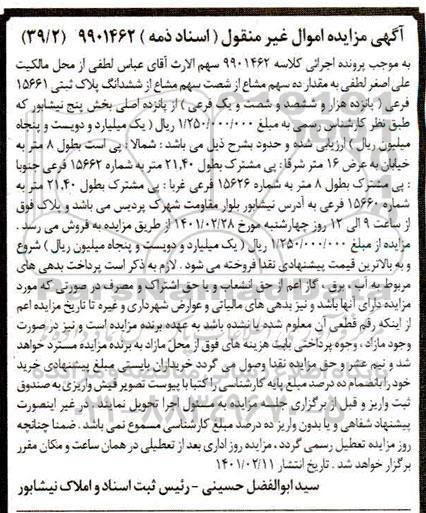 آگهی مزایده اموال غیر منقول ( اسناد ذمه ) ۹۹۰۱۴۶۲ (۳۹/۲)
به موجب پرونده اجرائی کلاسه ۹۹۰۱۴۶۲ سهم الارث آقای عباس لطفی از محل مالکیت
علی اصغر لطفی به مقدار ده سهم مشاع از شصت سهم مشاع از ششدانگ پلاک ثبتی ۱۵۶۶۱
فرعی ( پانزده هزار و ششصد و شصت و یک فرعی ) از پانزده اصلی بخش پنج نیشابور که
طبق نظر کارشناس رسمی به مبلغ ۱/۲۵۰/۰۰۰/۰۰۰ ریال ( یک میلیارد و دویست و پنجاه
میلیون ریال ) ارزیابی شده و حدود بشرح ذیل می باشد : شمالا : پی است بطول ۸ متر به
خیابان به عرض ۱۶ متر شرقا : پی مشترک بطول ۲۱,۴۰ متر به شماره ۱۵۶۶۲ فرعی جنوبا
: پی مشترک بطول ۸ متر به شماره ۱۵۶۲۶ فرعی غربا : پی مشترک بطول ۲۱,۴۰ متر به
شماره ۱۵۶۶۰ فرعی به آدرس نیشابور بلوار مقاومت شهرک پردیس می باشد و پلاک فوق
از ساعت ۹ الی ۱۲ روز چهارشنبه مورخ ۱۴۰۱/۰۲/۲۸ از طریق مزایده به فروش می رسد .
مزایده از مبلغ ۱/۲۵۰/۰۰۰/۰۰۰ ریال ( یک میلیارد و دویست و پنجاه میلیون ریال ) شروع
و به بالاترین قیمت پیشنهادی نقدا فروخته می شود . لازم به ذکر است پرداخت بدهی های
مربوط به آب ، برق ، گاز اعم از حق انشعاب و یا حق اشتراک و مصرف در صورتی که مورد
مزایده دارای آنها باشد و نیز بدهی های مالیاتی و عوارض شهرداری و غیره تا تاریخ مزایده اعم
از اینکه رقم قطعی آن معلوم شده یا نشده باشد به عهده برنده مزایده است و نیز در صورت
وجود مازاد ، وجوه پرداختی بابت هزینه های فوق از محل مازاد به برنده مزایده مسترد خواهد
شد و نیم عشر و حق مزایده نقدا وصول می گردد خریداران بایستی مبلغ پیشنهادی خرید
خود را بانضمام ده درصد مبلغ پایه کارشناسی را کتبا با پیوست تصویر فیش واریزی به صندوق
ثبت واریز و قبل از برگزاری جلسه مزایده به مسئول اجرا تحویل نمایند . در غیر اینصورت
پیشنهاد شفاهی و یا بدون واریز ده درصد مبلغ کارشناسی مسموع نمی باشد . ضمنا چنانچه
روز مزایده تعطیل رسمی گردد ، مزایده روز اداری بعد از تعطیلی در همان ساعت و مکان مقرر
برگزار خواهد شد . تاریخ انتشار ۱۴۰۱/۰۲/۱۱
سید ابوالفضل حسینی - رئیس ثبت اسناد و املاک نیشابور